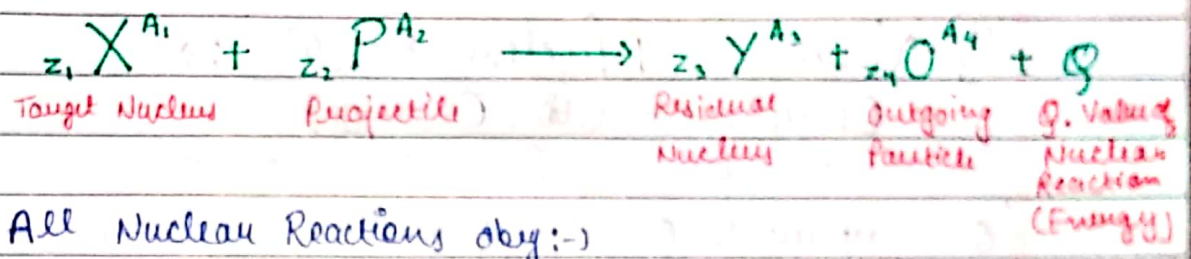 z₁X^A₁ + z₂P^A₂ ⟶ z₃Y^A₃ + z₄O^A₄ + Q
Target Nucleus Projectile Residual Outgoing Q. Value of
Nucleus Particle Nuclear
Reaction
(Energy)
All Nuclear Reactions obey:-)